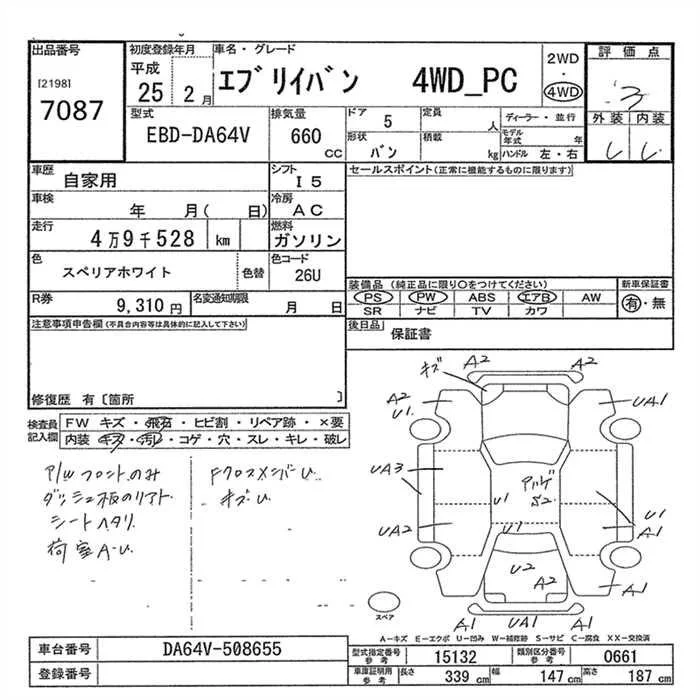 出品番号
[2198]
7087
初度登録年月
平成
25 2月
車名・グレード
エブリイバン 4WD_PC
2WD
・
4WD
評価点
3
外装 内装
型式
EBD-DA64V
排気量
660
cc
ドア 5
形状 バン
定員 人
積載 kg
ディーラー・並行
モデル年式 年
ハンドル 左・右
車歴 自家用
シフト I5
セールスポイント(正常に機能するものに限ります)
車検 年 月( 日)
冷房 AC
走行 4万9千528 km
燃料 ガソリン
色 スペリアホワイト
色替
色コード 26U
装備品(純正品に限り〇をつけてください)
新車保証書
PS PW ABS エアB AW
有・無
SR ナビ TV カワ
R券 9,310円
名変通知期限 月 日
注意事項申告欄(不具合内容等は具体的に記入して下さい)
後日品 保証書
修復歴 有〔箇所 〕
検査員記入欄
FW キズ・飛石・ヒビ割・リペア跡・×要
内装 キズ・汚レ・コゲ・穴・スレ・キレ・破レ
P/Wフロントのみ
ダッシュ板のリアト
シートヘタリ
荷室A-U
FクロスメンバーU
キズU
キズ A2 A2
A2 U1
UA1
UA3
UA2
U1
S2
U1
U1
A1
U2
A2
A1
A1 UA1 A1
スペア
A-キズ E-エクボ U-凹み W-補修跡 S-サビ C-腐食 XX-交換済
車台番号 DA64V-508655
登録番号
型式指定番号 参考 15132
類別区分番号 参考 0661
車庫証明用 参考 長さ 339cm 幅 147cm 高さ 187cm